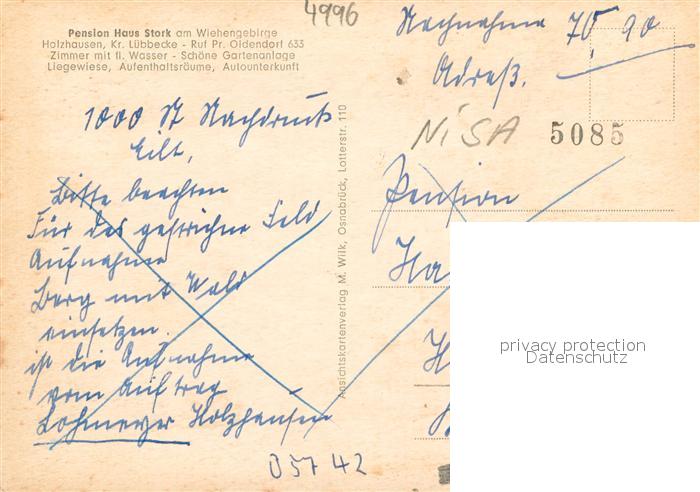 4996
Pension Haus Stork am Wiehengebirge
Holzhausen, Kr. Lübbecke - Ruf Pr. Oldendorf 633
Zimmer mit fl. Wasser - Schöne Gartenanlage
Liegewiese, Aufenthaltsräume, Autounterkunft
Nachnahme 75,90
Adreß.
NiSA
5085
1000 St Nachdruck
Eilt,
Bitte beachten
Für das gestrichene Feld
Aufnahme
Berg mit Wald
einsetzen.
ist die Aufnahme
vom Auftrag
Lohmeyer Holzhausen
Ansichtskartenverlag M. Wilk, Osnabrück, Lotterstr. 110
Pension
Ha
H
privacy protection
Datenschutz
D5742